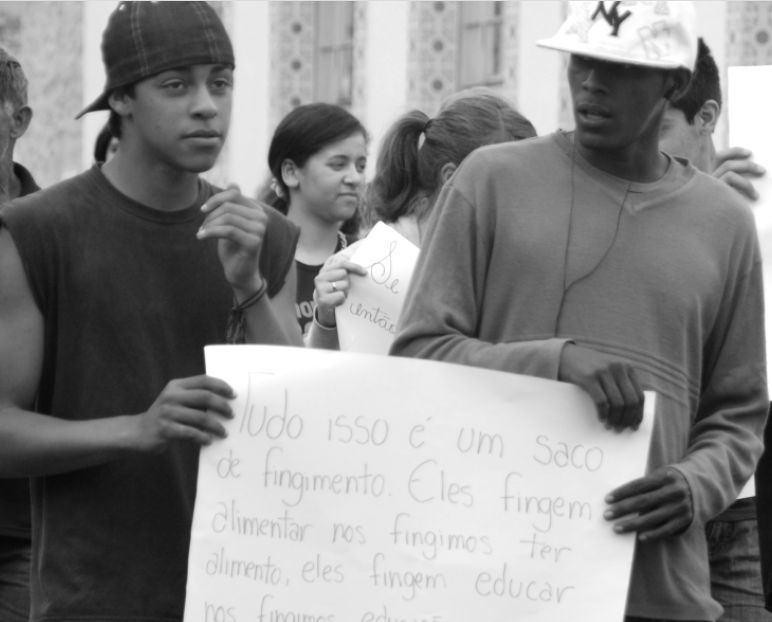 NY
Se
então
Tudo isso é um saco
de fingimento. Eles fingem
alimentar nos fingimos ter
alimento, eles fingem educar
nos fingimos